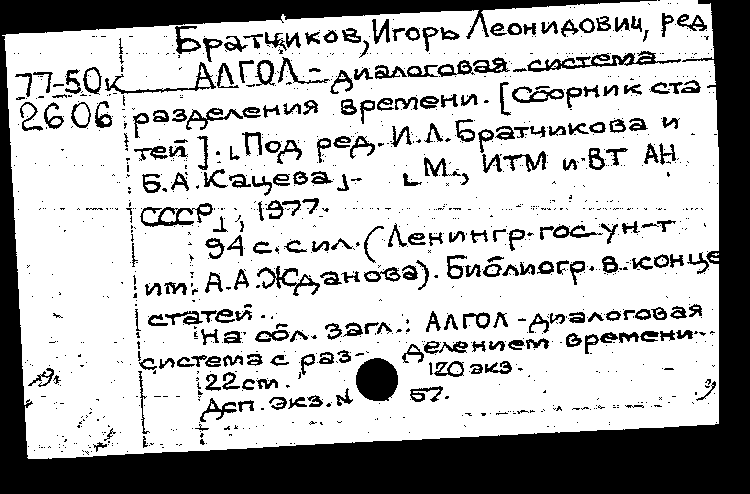 Братчиков, Игорь Леонидович, ред
77-50к АЛГОЛ - диалоговая система
2606 разделения времени. [Сборник ста-
тей]. [Под ред. И.Л. Братчикова и
Б.А. Кацева]. - [М., ИТМ и ВТ АН
СССР], 1977.
94 с. с ил. (Ленингр. гос. ун-т
им. А.А. Жданова). Библиогр. в конце
статей.
На обл. загл.: АЛГОЛ - диалоговая
система с раз- делением времени.
22 cm. 120 экз.
Дсп. Экз. № 57.